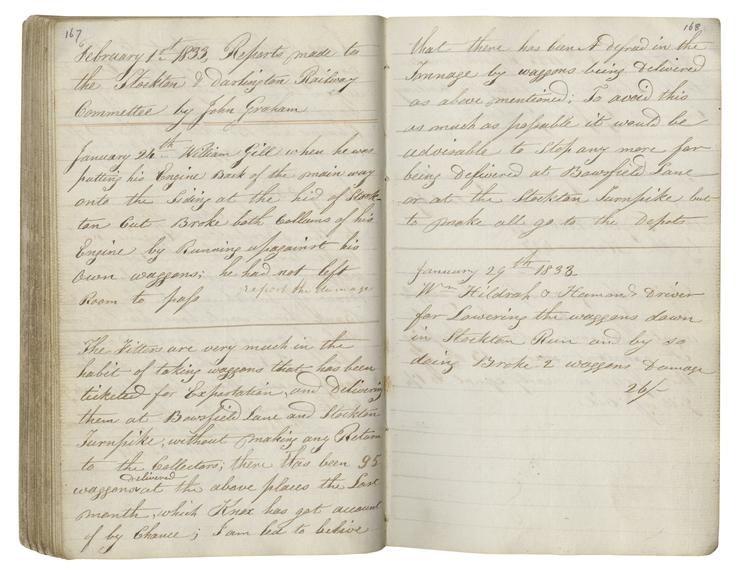 167
February 1st 1833, Reports made to
the Stockton & Darlington Railway
Committee by John Graham
January 24th William Gill when he was
putting his Engine Back of the main way
onto the Siding at the hid of Stock-
ton Cut Broke both Collums of his
Engine by Running upagainst his
Own waggons; he had not left
Room to pass report the damage
The Fitters are very much in the
habit of taking waggons that has been
ticketed for Exportation, and Delivering
them at Bowsfield Lane and Stockton
Turnpike, without making any Return
to the Collectors; there Has been 95
waggons delivered at the above places the Last
month, which Knox has got account
of by Chance; I am led to beleive
168
that there has been A defraud in the
Tunnage by waggons being Delivered
as above mentioned; To avoid this
as much as possable it would be
advisable to Stop any more for
being Delivered at Bowsfield Lane
or at the Stockton Turnpike but
to make all go to the Depots
January 29th 1833
Wm Hildrah & Hammond Driver
for Lowering the waggons down
in Stockton Run and by so
doing Broke 2 waggons Damage
26/